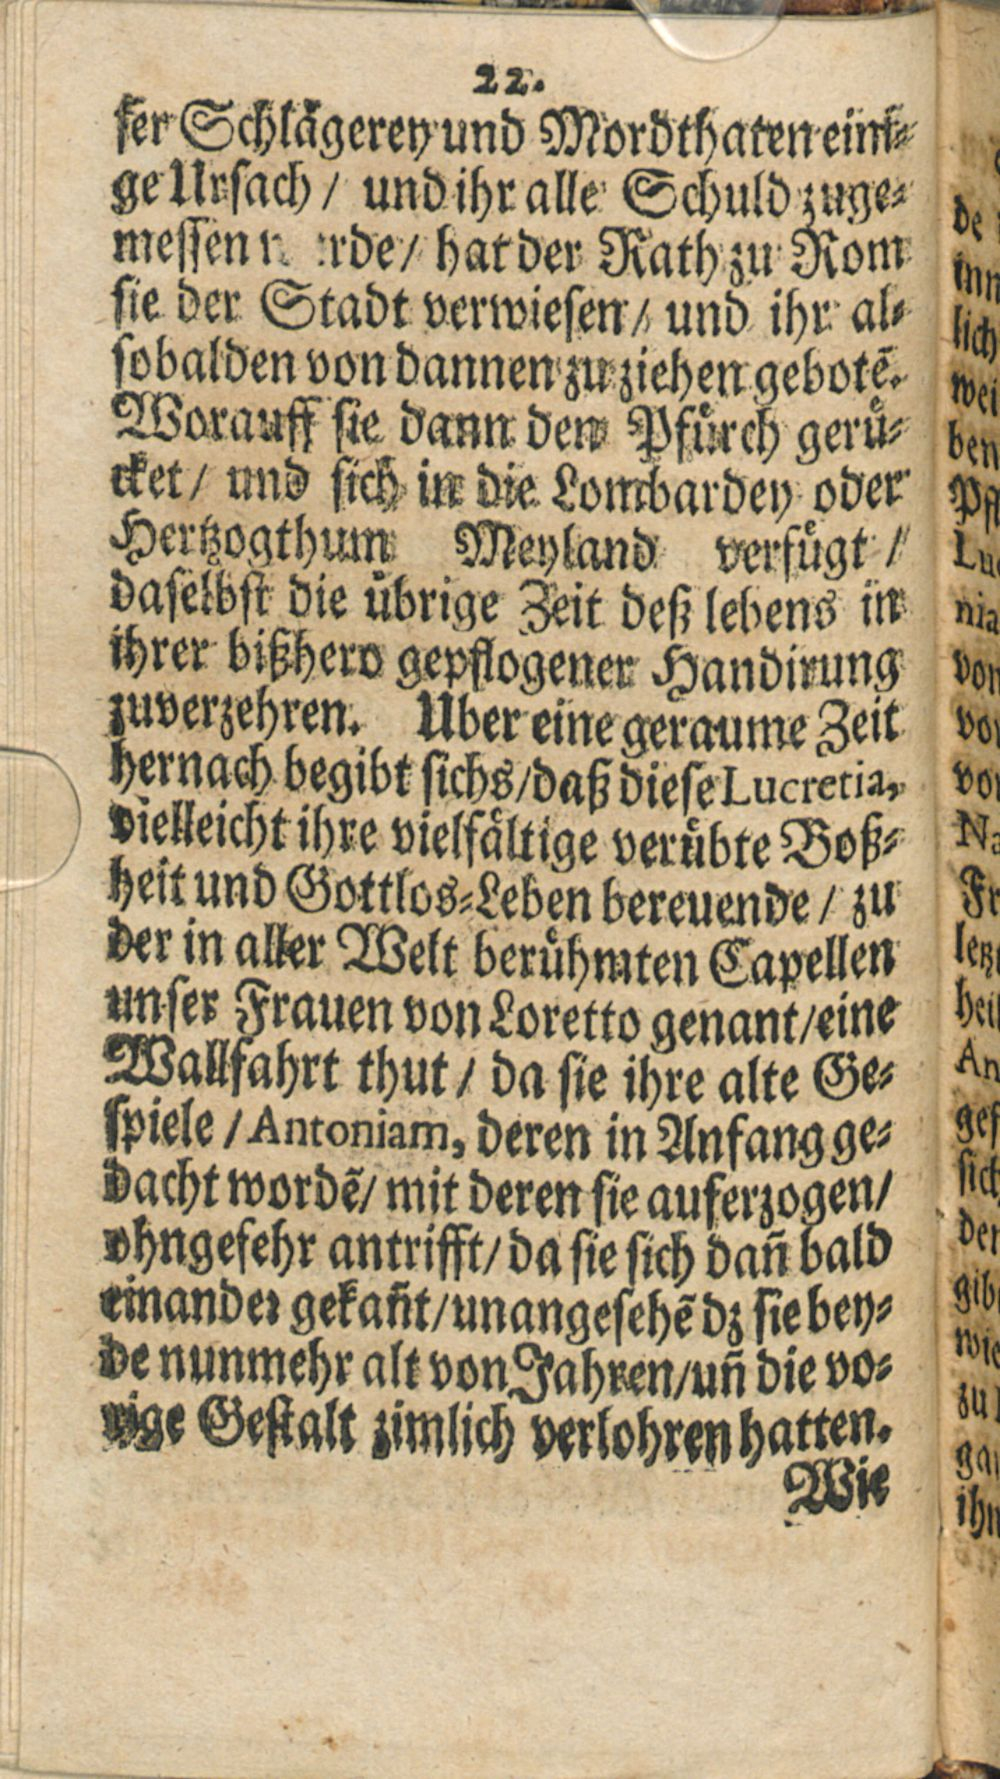 22.
ser Schlägerey und Mordthaten eini-
ge Ursach / und ihr alle Schuld zuge-
messen / hat der Rath zu Rom
sie der Stadt verwiesen / und ihr al-
sobalden von dannen zu ziehen gebotẽ.
Worauff sie dann den Pfürch gerü-
cket / und sich in die Lombardey oder
Hertzogthum Meyland verfügt /
daselbst die übrige Zeit deß lebens in
ihrer bißhero gepflogener Handirung
zuverzehren. Uber eine geraume Zeit
hernach begibt sichs / daß diese Lucretia,
vielleicht ihre vielfältige verübte Boß-
heit und Gottlos-Leben bereuende / zu
der in aller Welt berühmten Capellen
unser Frauen von Loretto genant / eine
Wallfahrt thut / da sie ihre alte Ge-
spiele / Antoniam, deren in Anfang ge-
dacht wordẽ / mit deren sie auferzogen /
ohngefehr antrifft / da sie sich dañ bald
einander gekañt / unangesehẽ dz sie bey-
de nunmehr alt von Jahren / uñ die vo-
rige Gestalt zimlich verlohren hatten.
Wie